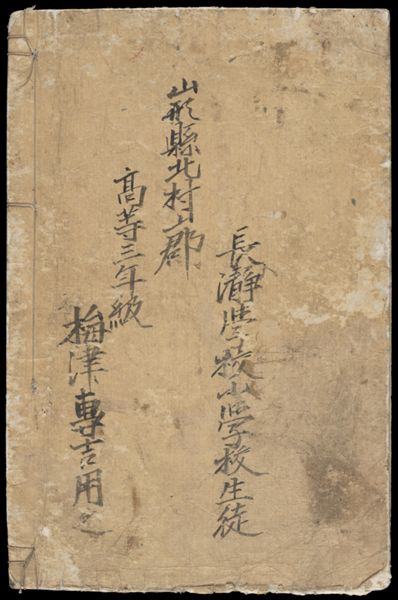 長瀞学校小学校生徒
山形縣北村山郡
高等三年級
梅津專吉用之